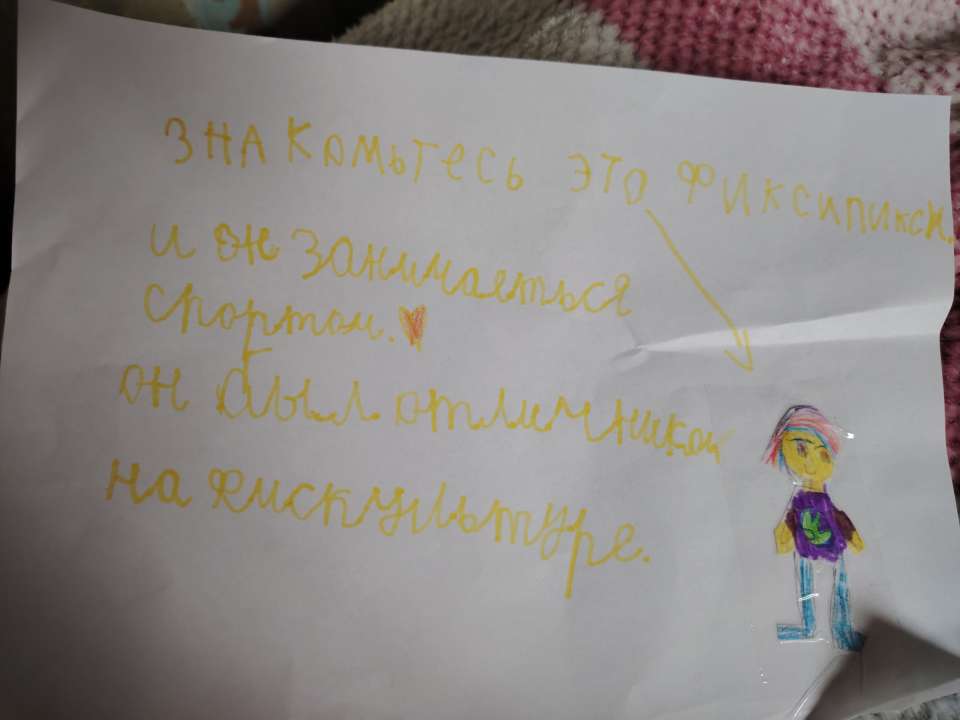 ЗНАКОМЬТЕСЬ ЭТО ФИКСИПИКСИ.
и он занимаеться
спортом.
он был отличником
на фискультуре.